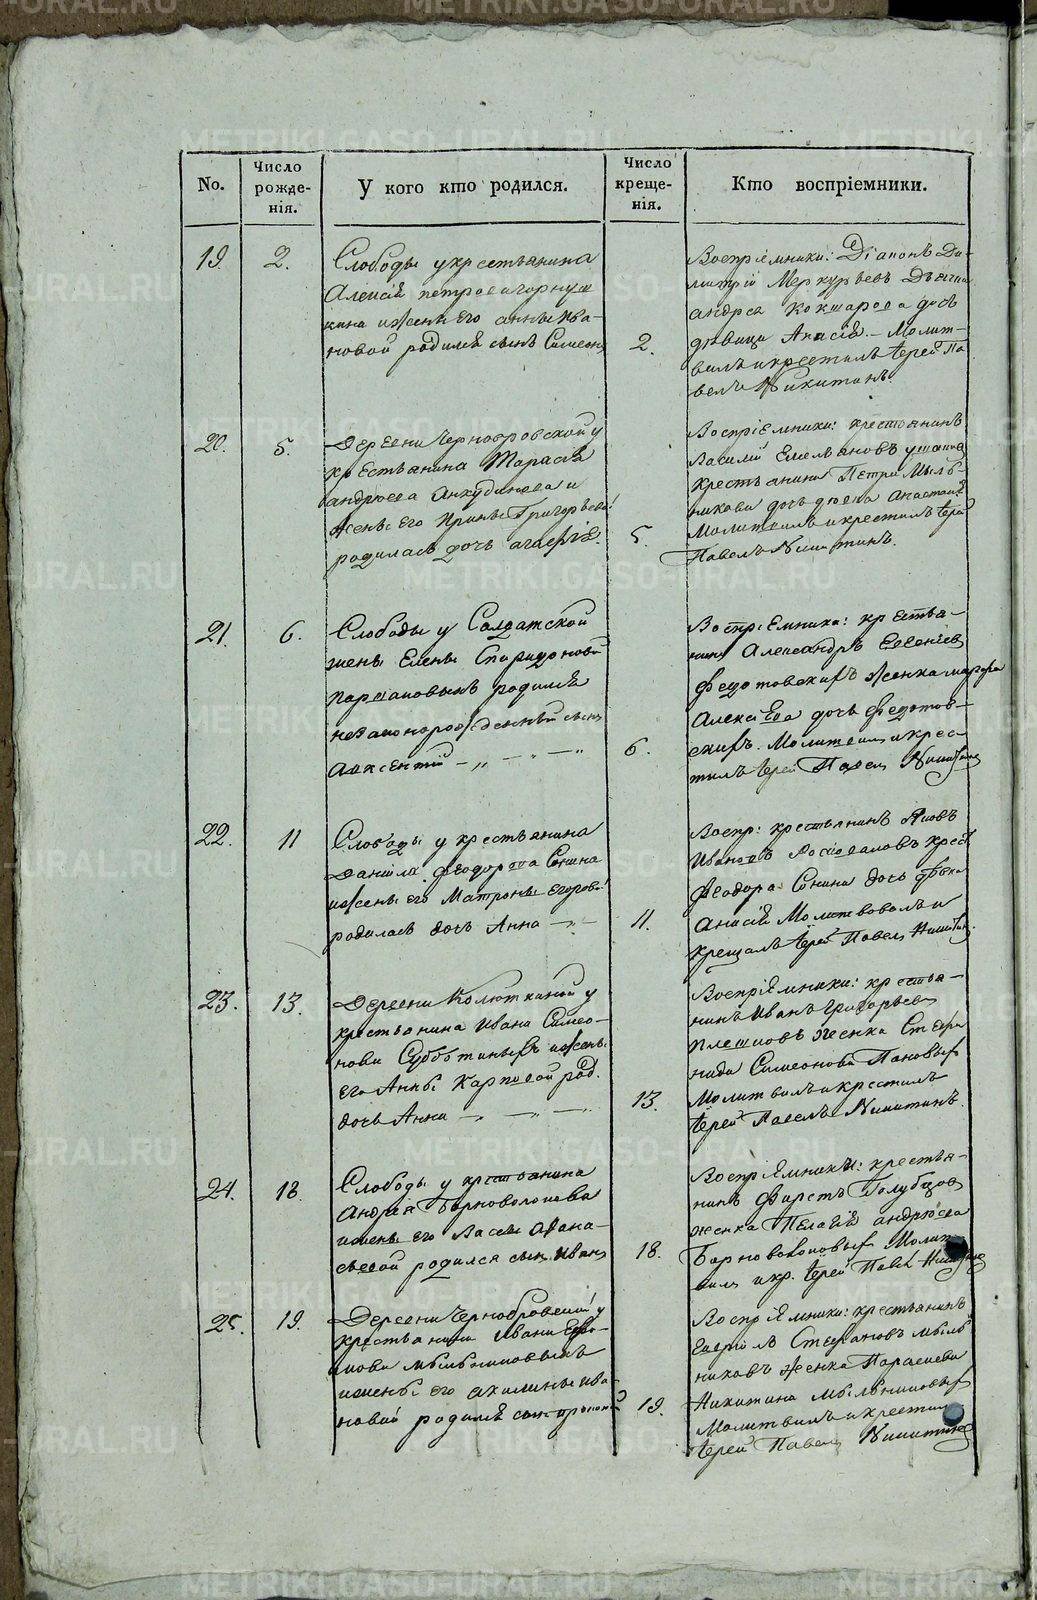 METRIKI.GASO-URAL.RU
No.
Число рожде-нія.
У кого кто родился.
Число креще-нія.
Кто воспріемники.
19
2.
Слободы у крестьянина
Алексія Петрова
жены Его Анны Ива-
новой родился сынъ Симеонъ
2.
Воспріемники: Діаконъ Ди-
митрій Меркурьевъ
Андрея Кокшарова дочь
девица
вилъ и крестилъ Іерей Па
велъ Никитинъ.
20.
5.
Деревни Чернобровской у
крестьянина Тарасія
Андреева Анкудинова и
жены Его Ирины Григорьевой
родилась дочь Агафія.
5.
Воспріемники: крестьянинъ
Василій Емельяновъ
Крестьянина Петра Мыль-
никова дочь девка Анастасія
Молитвилъ и крестилъ Іерей
Павелъ Никитинъ.
21.
6.
Слободы у Солдатской
жены Елены Спиридоновой
родился
незаконорожденный сынъ
Авксентій — „ — „ — „
6.
Воспріемники: крестья-
нинъ Александръ Евгеніевъ
Федотовскихъ женка
Алексіева дочь Федотов-
скихъ. Молитвилъ и крес-
тилъ Іерей Павелъ Никитинъ
22.
11
Слободы у крестьянина
Даніила Феодорова Сонина
и жены его Матроны Егоровой
родилась дочь Анна — „ —
11.
Воспр: крестьянинъ Яковъ
Ивановъ крест
Феодора Сонина дочь девка
Анисія Молитвовалъ и
Крещалъ Іерей Павелъ Никитинъ
23.
13.
Деревни Колюткиной у
крестьянина Ивана Симео-
нова Субботиныхъ и жены
Его Анны Карповой род.
дочь Анна — „ — „ — „
13.
Воспріемники: крестья-
нинъ Иванъ Григорьевъ
Плешковъ женка Стефа
нида Симеонова Пановыхъ
Молитвилъ и крестилъ
Іерей Павелъ Никитинъ.
24.
18.
Слободы у крестьянина
Андрея Барноволокова
и жены его Вассы Афана-
сьевой родился сынъ Иванъ
18.
Воспріемники: крестья-
нинъ Фирстъ Голубцовъ
женка Пелагія Андреева
Барноволоковыхъ Молит-
вилъ и кр. Іерей Павелъ Никитинъ
25.
19.
Деревни Чернобровской у
крестьянина Ивана
Мыльниковыхъ
и жены его Акилины Ива-
новой родился сынъ
19.
Воспріемники: крестьянинъ
Гавріилъ Стефановъ Мыль
никовъ женка Параскева
Никитина Мыльниковыхъ
Молитвилъ и крестилъ
Іерей Павелъ Никитинъ